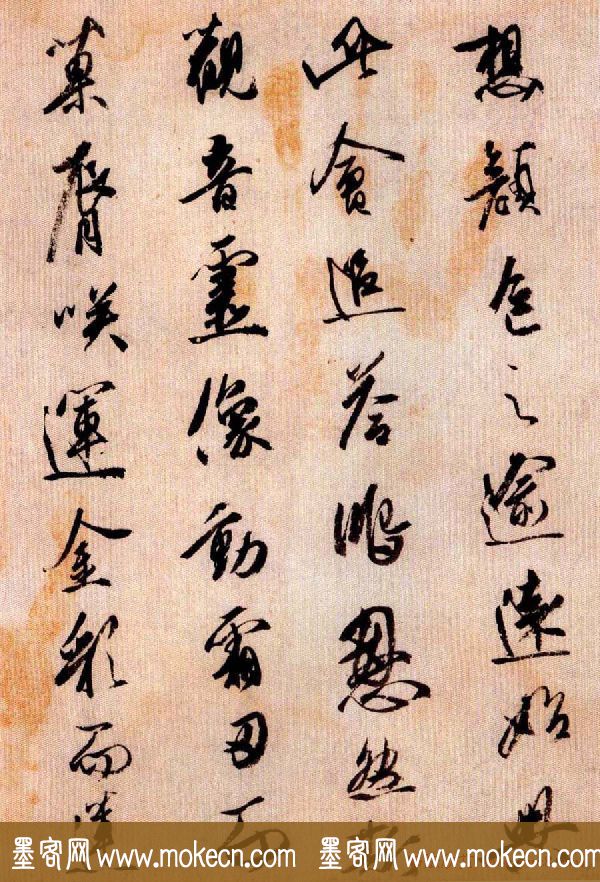 想顏色之逾遠始
此會追荅鴻然
觀音靈像動霜而
菓脣咲運金彩而
墨客网 www.mokecn.com 墨客网 www.mokecn.com